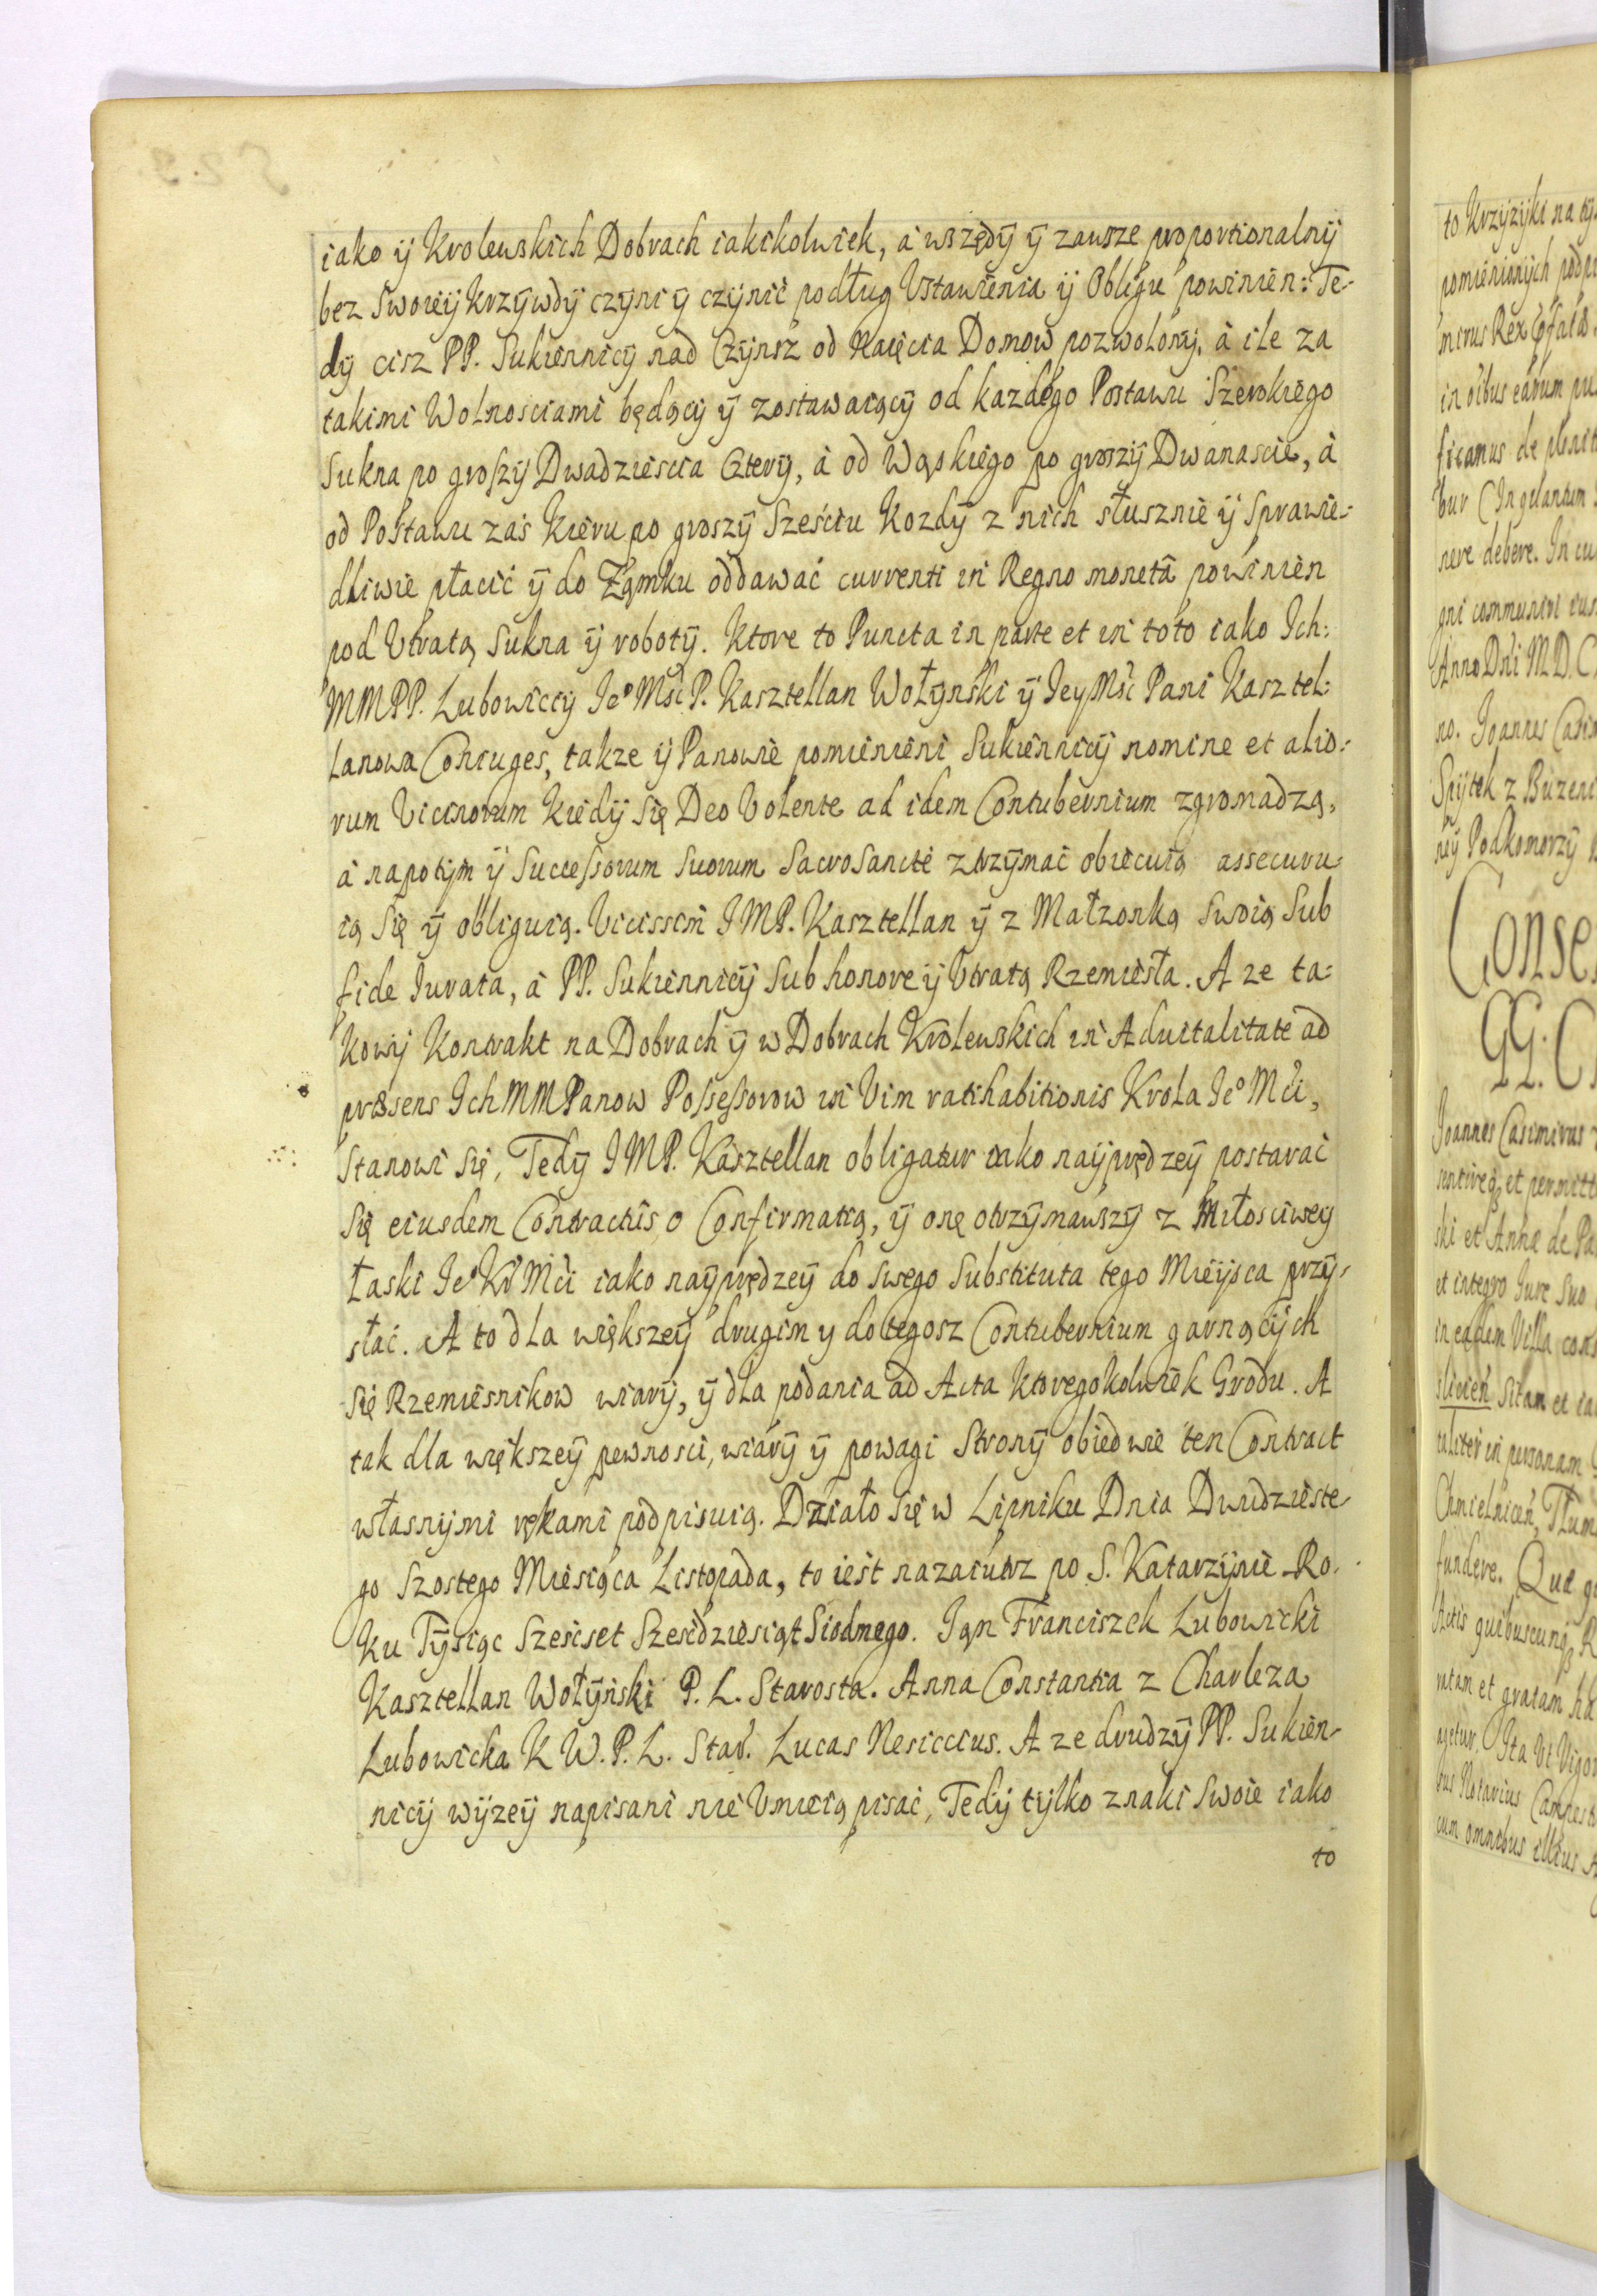 iako ÿ Krolewskich Dobrach iakikolwiek, à wszędÿ ÿ zawsze proportionalnÿ
bez Swoieÿ Krzÿwdÿ czÿni ÿ czÿnić podług Vstawienia ÿ Obligu powinien: Te-
dÿ cisz PP. Sukiennicÿ nad Czÿnsz od Naięcia Domow pozwolonÿ, à ile za
takimi Wolnosciami będącÿ ÿ zostawaiącÿ od kazdego Postawu Szerokiego
Sukna po groszÿ Dwadziescia Czterÿ, à od Wąskiego po groszÿ Dwanascie, à
od Postawu zaś Kieru po groszÿ Sześciu Kozdÿ z nich słusznie ÿ Sprawie-
dliwie płacić ÿ do Zamku oddawać currenti in Regno monetâ powinien
pod Vtratą Sukna ÿ robotÿ. Ktore to Puncta in parte et in toto iako Ich:
MMPP. Lubowiccÿ Jeº Mśc P. Kasztellan Wołÿnski ÿ Jey Mśc Pani Kasztel:
lanowa Coniuges, takze ÿ Panowie pomienieni Sukiennicÿ nomine et alio-
rum Vicinorum Kiedÿ Się Deo Volente ad idem Contubernium zgromadzą,
à napotÿm ÿ Successorum Suorum Sacrosanctè ztrzÿmać obiecuią assecuru-
ią Się ÿ obliguią. Vicissim JMP. Kasztellan ÿ z Małzonką Swoią Sub
fide Iurata, à PP. Sukiennicÿ Sub honore ÿ Vtratą Rzemiesła. A ze ta-
kowÿ Kontrakt na Dobrach ÿ w Dobrach Krolewskich in Aduitalitate ad
præsens Ich MMPanow Possessorow in Vim ratihabitionis Krola Jeº Mci,
Stanowi Się, Tedÿ JMP. Kasztellan obligatur iako naÿprędzeÿ postarać
Się eiusdem Contractûs o Confirmatią, ÿ onę otrzÿmawszÿ z Miłosciweÿ
Łaski Jeº Kr Mci iako naÿprędzeÿ do Swego Substituta tego Mieÿsca przÿ-
słać. A to dla większeÿ drugim y do tegosz Contubernium garnącÿch
Się Rzemiesnikow wiarÿ, ÿ dla podania ad Acta Ktoregokolwiek Grodu. A
tak dla większeÿ pewnosci, wiarÿ ÿ powagi Stronÿ obiedwie ten Contract
własnÿmi rękami podpisuią. Działo Się w Lipniku Dnia Dwudzieste-
go Szostego Miesiąca Listopada, to iest nazaiutrz po S. Katarzÿnie Ro-
ku Tÿsiąc Szescset Szescdziesiąt Siodmego. Jan Franciszek Lubowicki
Kasztellan Wołÿński P. L. Starosta. Anna Constantia z Charleza
Lubowicka K W. P. L. Star. Lucas Nesiccius. A ze drudzÿ PP. Sukien-
nicÿ wÿzeÿ napisani nie Vmieią pisać, Tedÿ tÿlko znaki Swoie iako
to
to Krzÿzÿki na tÿ
pomienionÿch podpi
mirus Rex
in oïbus earum pu
nere debere. In cu
gni communiri ius
Anno Dni M.D.C
no. Joannes Casim
Spÿtek z Buzeni
neÿ Podkomorzÿ
Conse
GG. C
Joannes Casimirus
ski et Anna de Pa
et integro Iure Suo
in eadem Villa cons
taliter in personam
fundere. Quæ
ratam et gratam ha
agetur. Ita Vt Vigor
bus Notarius
cum omnibus illius